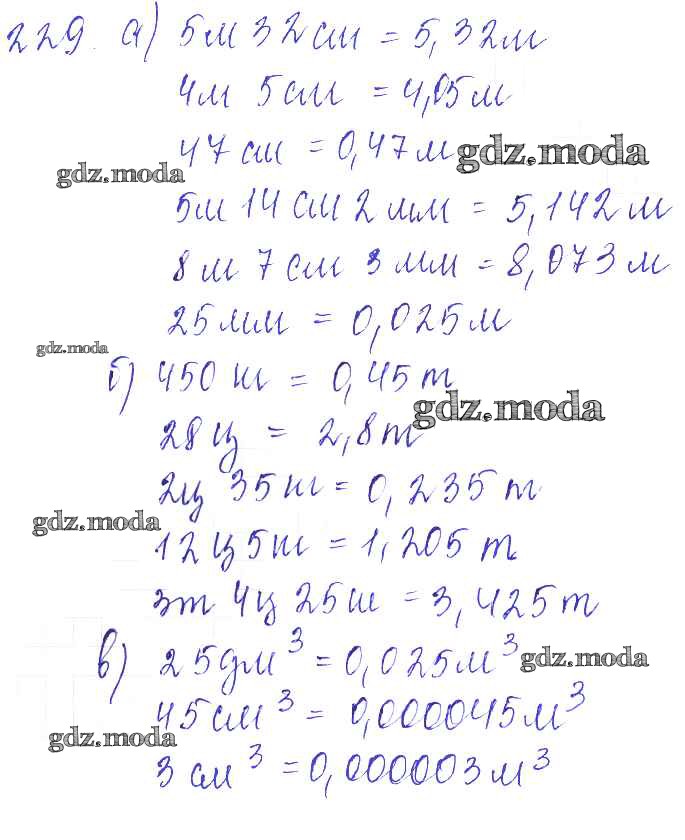 229. а) 5м 32см = 5,32м
4м 5см = 4,05м
47см = 0,47м gdz.moda
gdz.moda
5м 14см 2мм = 5,142м
8м 7см 3мм = 8,073м
25мм = 0,025м
gdz.moda
б) 450кг = 0,45т
gdz.moda
28ц = 2,8т
2ц 35кг = 0,235т
gdz.moda
12ц 5кг = 1,205т
3т 4ц 25кг = 3,425т
в) 25дм³ = 0,025м³ gdz.moda
45см³ = 0,000045м³
gdz.moda
3см³ = 0,000003м³